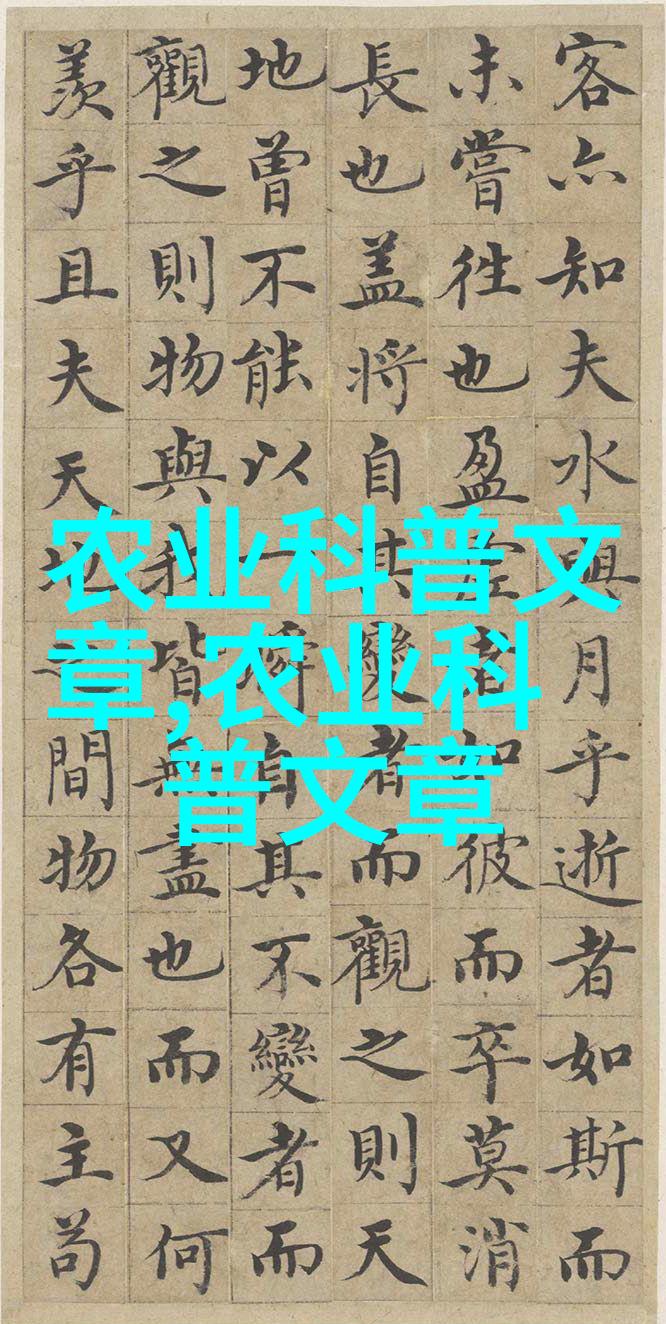 客亦知夫水與月乎逝者如斯而
未嘗往也盈者如彼而卒莫消
長也盖將自其變者而觀之則天
地曾不能以一瞬自其不變者而
觀之則物與我皆無盡也而又何
羨乎且夫天地間物各有主苟
农业科普文
章,农业科
普文章